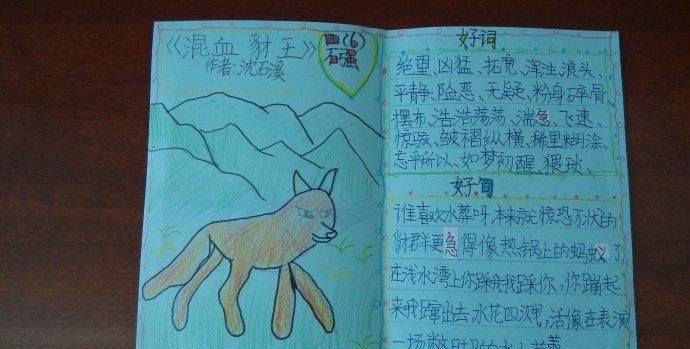 《混血豺王》
作者:沈石溪
四(6)
石强
好词
绝望、凶猛、拓宽、浑浊、浪头、
平静、险恶、无疑、粉身碎骨
摆布、浩浩荡荡、湍急、飞速、
惊骇、皱褶纵横、稀里糊涂、
忘乎所以、如梦初醒、猥琐、
好句
谁喜欢水葬呀,本来就惊恐万状的
豺群更急得像热锅上的蚂蚁了,
在浅水湾上你踩我我踩你,你蹦起
来我蹿出去,水花四溅,活像在表演
一场